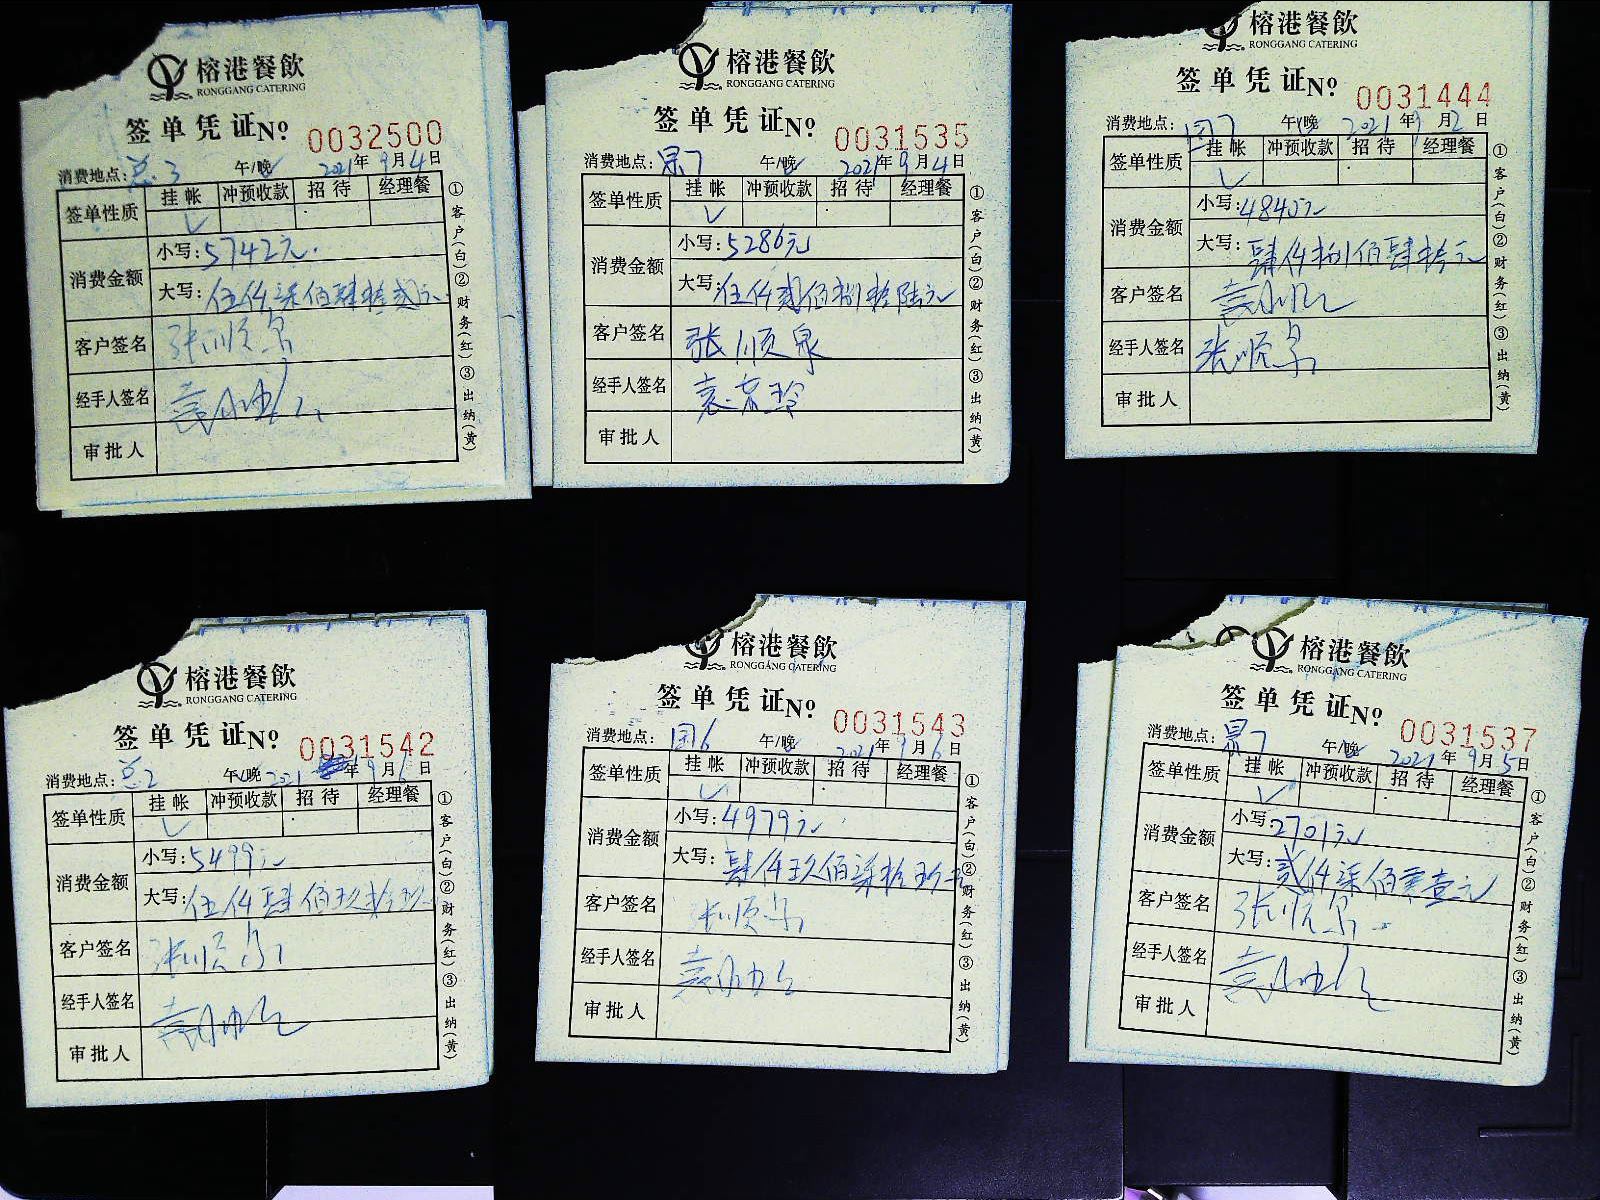 榕港餐飲
RONGGANG CATERING
签单凭证 No 0032500
消费地点: 总3 午/晚 2021年9月4日
签单性质 挂帐 冲预收款 招待 经理餐
✓
消费金额 小写: 5742元.
大写: 伍仟柒佰肆拾贰元
客户签名 张顺泉
经手人签名
审批人
①客户(白)②财务(红)③出纳(黄)
榕港餐飲
RONGGANG CATERING
签单凭证 No 0031535
消费地点: 景7 午/晚 2021年9月4日
签单性质 挂帐 冲预收款 招待 经理餐
✓
消费金额 小写: 5286元
大写: 伍仟贰佰捌拾陆元
客户签名 张顺泉
经手人签名
审批人
①客户(白)②财务(红)③出纳(黄)
榕港餐飲
RONGGANG CATERING
签单凭证 No 0031444
消费地点: 国7 午/晚 2021年9月2日
签单性质 挂帐 冲预收款 招待 经理餐
✓
消费金额 小写: 4840元
大写: 肆仟捌佰肆拾元
客户签名
经手人签名 张顺泉
审批人
①客户(白)②财务(红)③出纳(黄)
榕港餐飲
RONGGANG CATERING
签单凭证 No 0031542
消费地点: 总2 午/晚 2021年9月6日
签单性质 挂帐 冲预收款 招待 经理餐
✓
消费金额 小写: 5499元
大写: 伍仟肆佰玖拾玖
客户签名 张顺泉
经手人签名
审批人
①客户(白)②财务(红)③出纳(黄)
榕港餐飲
RONGGANG CATERING
签单凭证 No 0031543
消费地点: 国6 午/晚 2021年9月6日
签单性质 挂帐 冲预收款 招待 经理餐
✓
消费金额 小写: 4979元
大写: 肆仟玖佰柒拾玖元
客户签名 张顺泉
经手人签名
审批人
①客户(白)②财务(红)③出纳(黄)
榕港餐飲
RONGGANG CATERING
签单凭证 No 0031537
消费地点: 景7 午/晚 2021年9月5日
签单性质 挂帐 冲预收款 招待 经理餐
✓
消费金额 小写: 2701元
大写: 贰仟柒佰零壹元
客户签名 张顺泉
经手人签名
审批人
①客户(白)②财务(红)③出纳(黄)